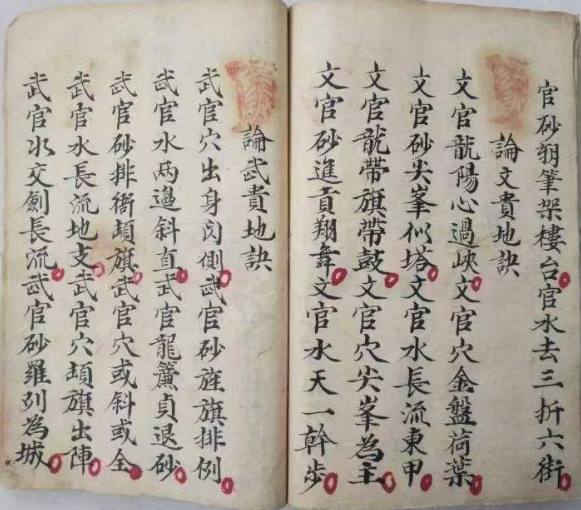 官砂朔筆架樓台官水去三折六街
論文貴地訣
文官龍陽心過峽文官穴金盤荷葉
文官砂尖峯似塔文官水長流東甲
文官龍帶旗帶鼓文官穴尖峯為主
文官砂進貢翔舞文官水天一幹步
論武貴地訣
武官穴出身閃側武官砂旌旗排例
武官水两邉斜直武官龍簾貞退砂
武官砂排衙頓旗武官穴或斜或仝
武官水長流地支武官穴頓旗出陣
武官水交劍長流武官砂羅列為城